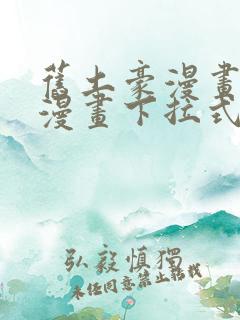 舊土豪漫畫
漫畫下拉式
弘毅慎獨
未任同意禁止轉載